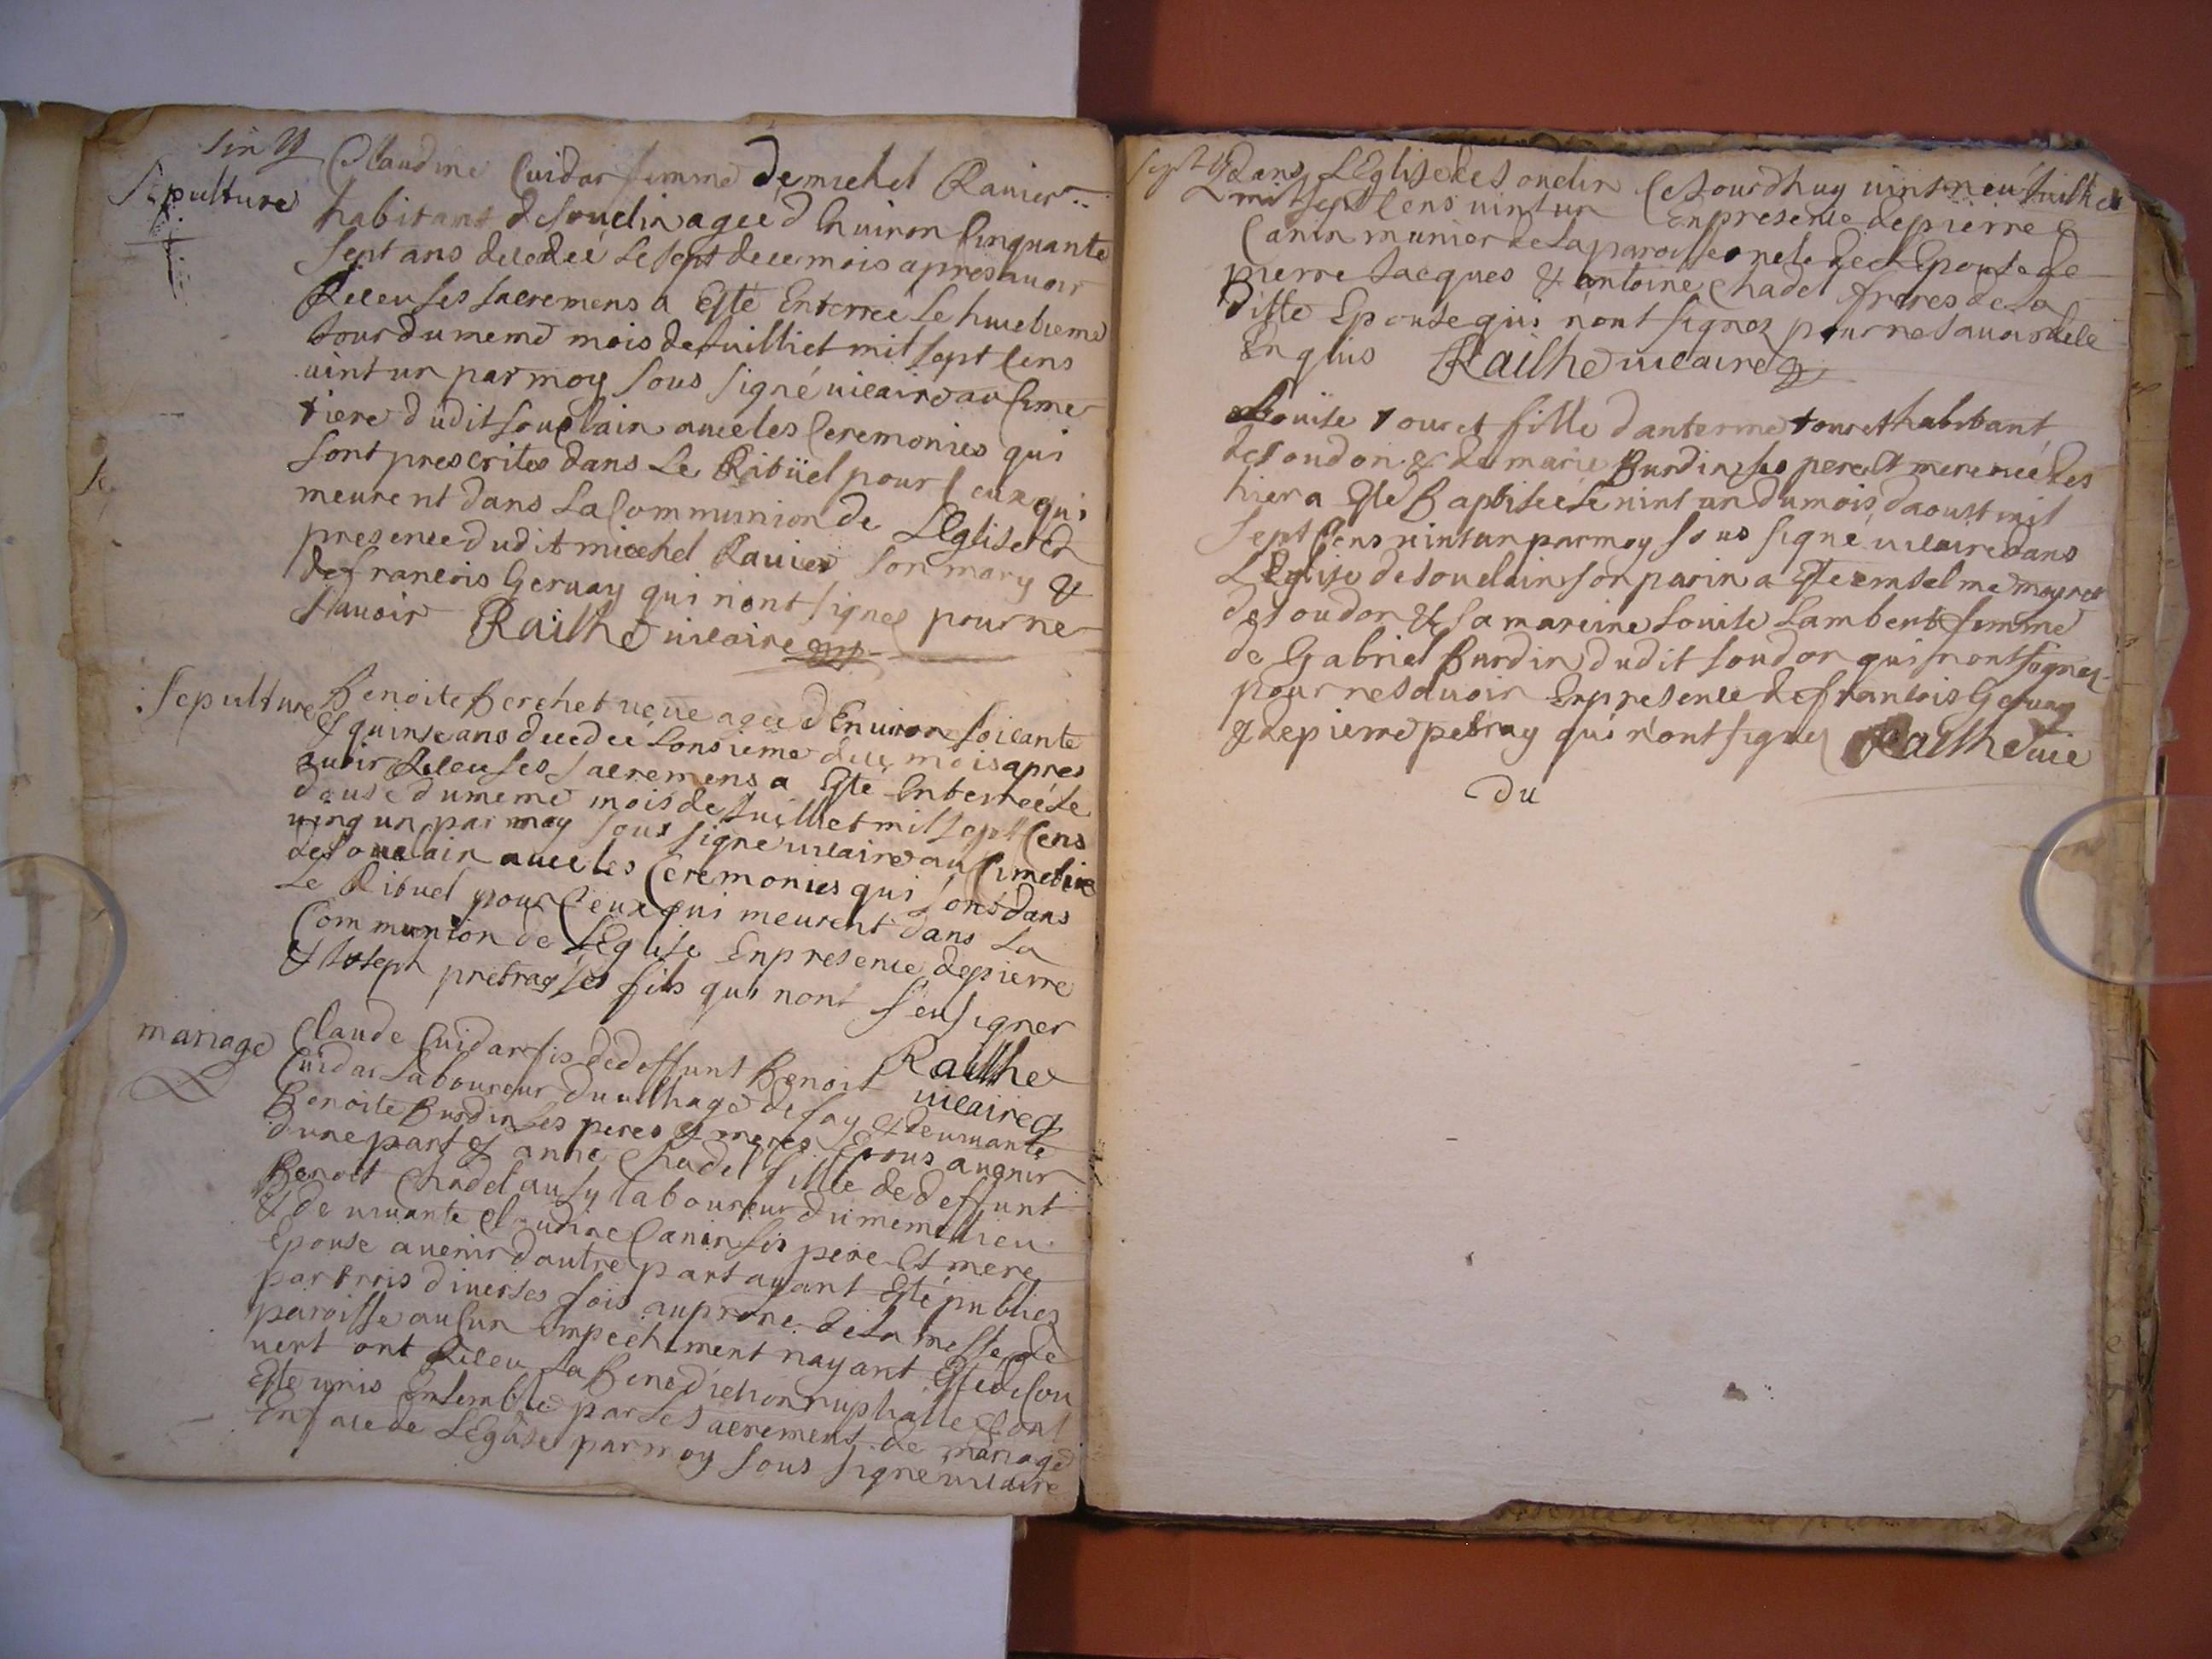 Sepulture
Claudine Cuidar femme de michel Ravier
habitant de souclin agée d Enuiron Cinquante
sept ans decedée le sept de ce mois apres auoir
Receu ses sacremens a Esté Enterrée le huictieme
Jour du meme mois de Juilliet mil sept Cens
uint un par moy sous signé uicaire au Cime
tiere dudit souclain auec les Ceremonies qui
sont prescrites dans Le Ritüel pour Ceux qui
meurent dans La Communion de L'Eglise En
presence dudit michel Rauier son mary &
de francois Geruay qui n'ont signes pour ne
scauoir Railhe uicaire
Sepulture
Benoite Berchet ueue agée d'Enuiron soicante
& quinse ans decedée Lonsieme du mois apres
auoir Receu ses sacremens a Esté Enterrée Le
douse du meme mois de Juilliet mil sept Cens
uing un par moy sous signé uicaire au Cimetiere
de souclair auec les Ceremonies qui sont dans
Le Rituel pour Ceux qui meurent dans La
Communion de L'Eglise En presence de pierre
& Joseph pretray ses fils qui n'ont seu signer
Railhe
uicaire
mariage
Claude Cuidar fis de deffunt Benoit
Cuidar Laboureur du uilhage de fay & de uiuante
Benoite Burdin ses peres & meres Epous auenir
d'une part & anne Chadel fille de deffunt
Benoit Chadel ausy laboureur du meme lieu
& de uiuante Claudine Canin ses pere Et mere
Epouse auenir d'autre part ayant Esté publiez
par trois diuerses fois au prone de La messe de
paroisse aucun Empechement nayant Esté decou
uert ont Receu La Benediction nuphalle & ont
Esté unis Ensemble par Le sacrement de mariage
En face de L'Eglise par moy sous signé uicaire
dans L'Eglise de souclin Ce Jourdhuy uint neu Juilliet
mil sept Cens uint un En presence de pierre
Canin munier de La paroisse oncle de L'Epouse de
pierre Jacques & antoine Chadel freres de La
ditte Epouse qui n'ont signez pour ne sauoir de ce
Enquis Railhe uicaire
Louise touret fille d'anterme touret habitant
de soudon & de marie Burdin ses pere Et mere née des
hier a Esté Baptisée Le uint un du mois d'aoust mil
sept Cens uint un par moy sous signé uicaire dans
L'Eglise de souclain son parin a Esté
de soudon & sa mareine Louise Lambert femme
de Gabriel Burdin dudit soudon qui n'ont signez
pour ne sauoir En presence de francois Geruay
& de pierre petray qui n'ont signez Railhe uic
du